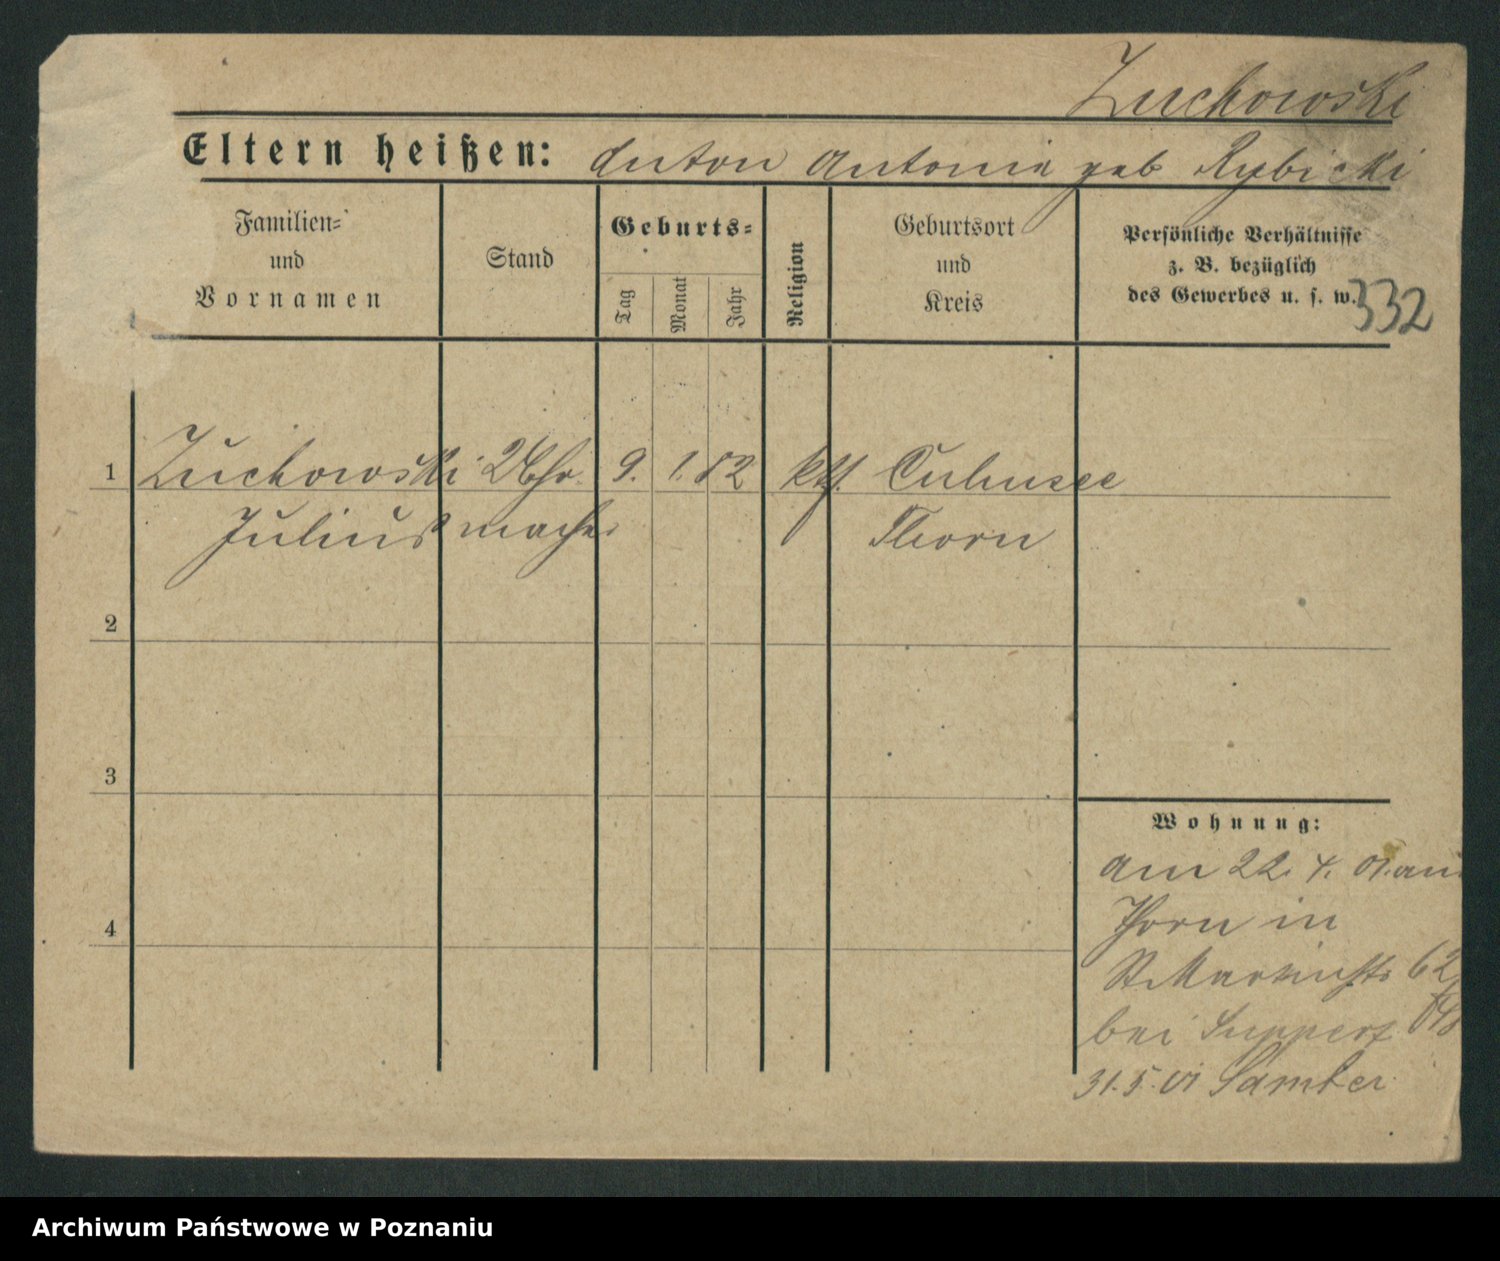 Zuchowski
Eltern heißen: Anton Antonie geb Rybicki
Familien-
und
Vornamen
Stand
Geburts-
Tag
Monat
Jahr
Religion
Geburtsort
und
Kreis
Persönliche Verhältnisse
z. B. bezüglich
des Gewerbes u. s. w.
332
1 Zuchowski Uhr- 9. 1. 82 kth. Culmsee
Julius macher Thorn
2
3
4
Wohnung:
am 22. 4. 01. aus
Thorn in
St Martinstr 62
bei
31. 5. 01 Samter
Archiwum Państwowe w Poznaniu